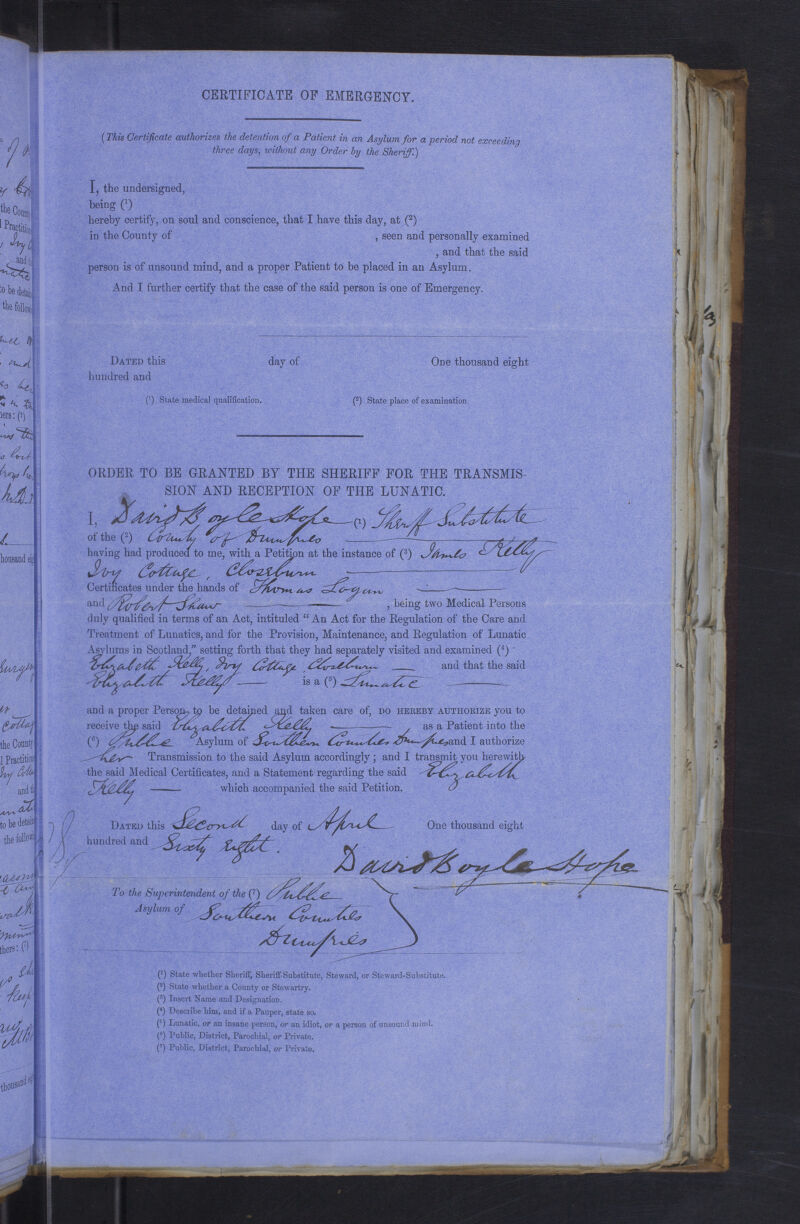 CERTIFICATE OF EMERGENCY.
(This Certificate authorizes the detention of a Patient in an Asylum for a period not exceeding
three days, without any Order by the Sheriff.)
I, the undersigned,
being (1)
hereby certify, on soul and conscience, that I have this day, at (2)
in the County of , seen and personally examined
, and that the said
person is of unsound mind, and a proper Patient to be placed in an Asylum.
And I further certify that the case of the said person is one of Emergency.
DATED this day of One thousand eight
hundred and
(1) State medical qualification. (2) State place of examination
ORDER TO BE GRANTED BY THE SHERIFF FOR THE TRANSMIS-
SION AND RECEPTION OF THE LUNATIC.
I, David Boyle Hope (1) Sheriff Substitute
of the (2) County of Dumfries
having had produced to me, with a Petition at the instance of (3) James Kelly
Ivy Cottage, Closeburn
Certificates under the hands of Thomas Logan
and Robert Shaw , being two Medical Persons
duly qualified in terms of an Act, intituled "An Act for the Regulation of the Care and
Treatment of Lunatics, and for the Provision, Maintenance, and Regulation of Lunatic
Asylums in Scotland," setting forth that they had separately visited and examined (4)
Elizabeth Kelly, Ivy Cottage Closeburn — and that the said
Elizabeth Kelly — is a (5) Lunatic
and a proper Person to be detained and taken care of, DO HEREBY AUTHORIZE you to
receive the said Elizabeth Kelly , as a Patient into the
(6) Public Asylum of Southern Counties Dumfries and I authorize
her Transmission to the said Asylum accordingly; and I transmit you herewith
the said Medical Certificates, and a Statement regarding the said Elizabeth
Kelly — which accompanied the said Petition.
DATED this Second day of April One thousand eight
hundred and Sixty eight.
David Boyle Hope
To the Superintendent of the (7) Public
Asylum of Southern Counties
Dumfries
(1) State whether Sheriff, Sheriff-Substitute, Steward, or Steward-Substitute.
(2) State whether a County or Stewartry.
(3) Insert Name and Designation.
(4) Describe him, and if a Pauper, state so.
(5) Lunatic, or an insane person, or an idiot, or a person of unsound mind.
(6) Public, District, Parochial, or Private.
(7) Public, District, Parochial, or Private.